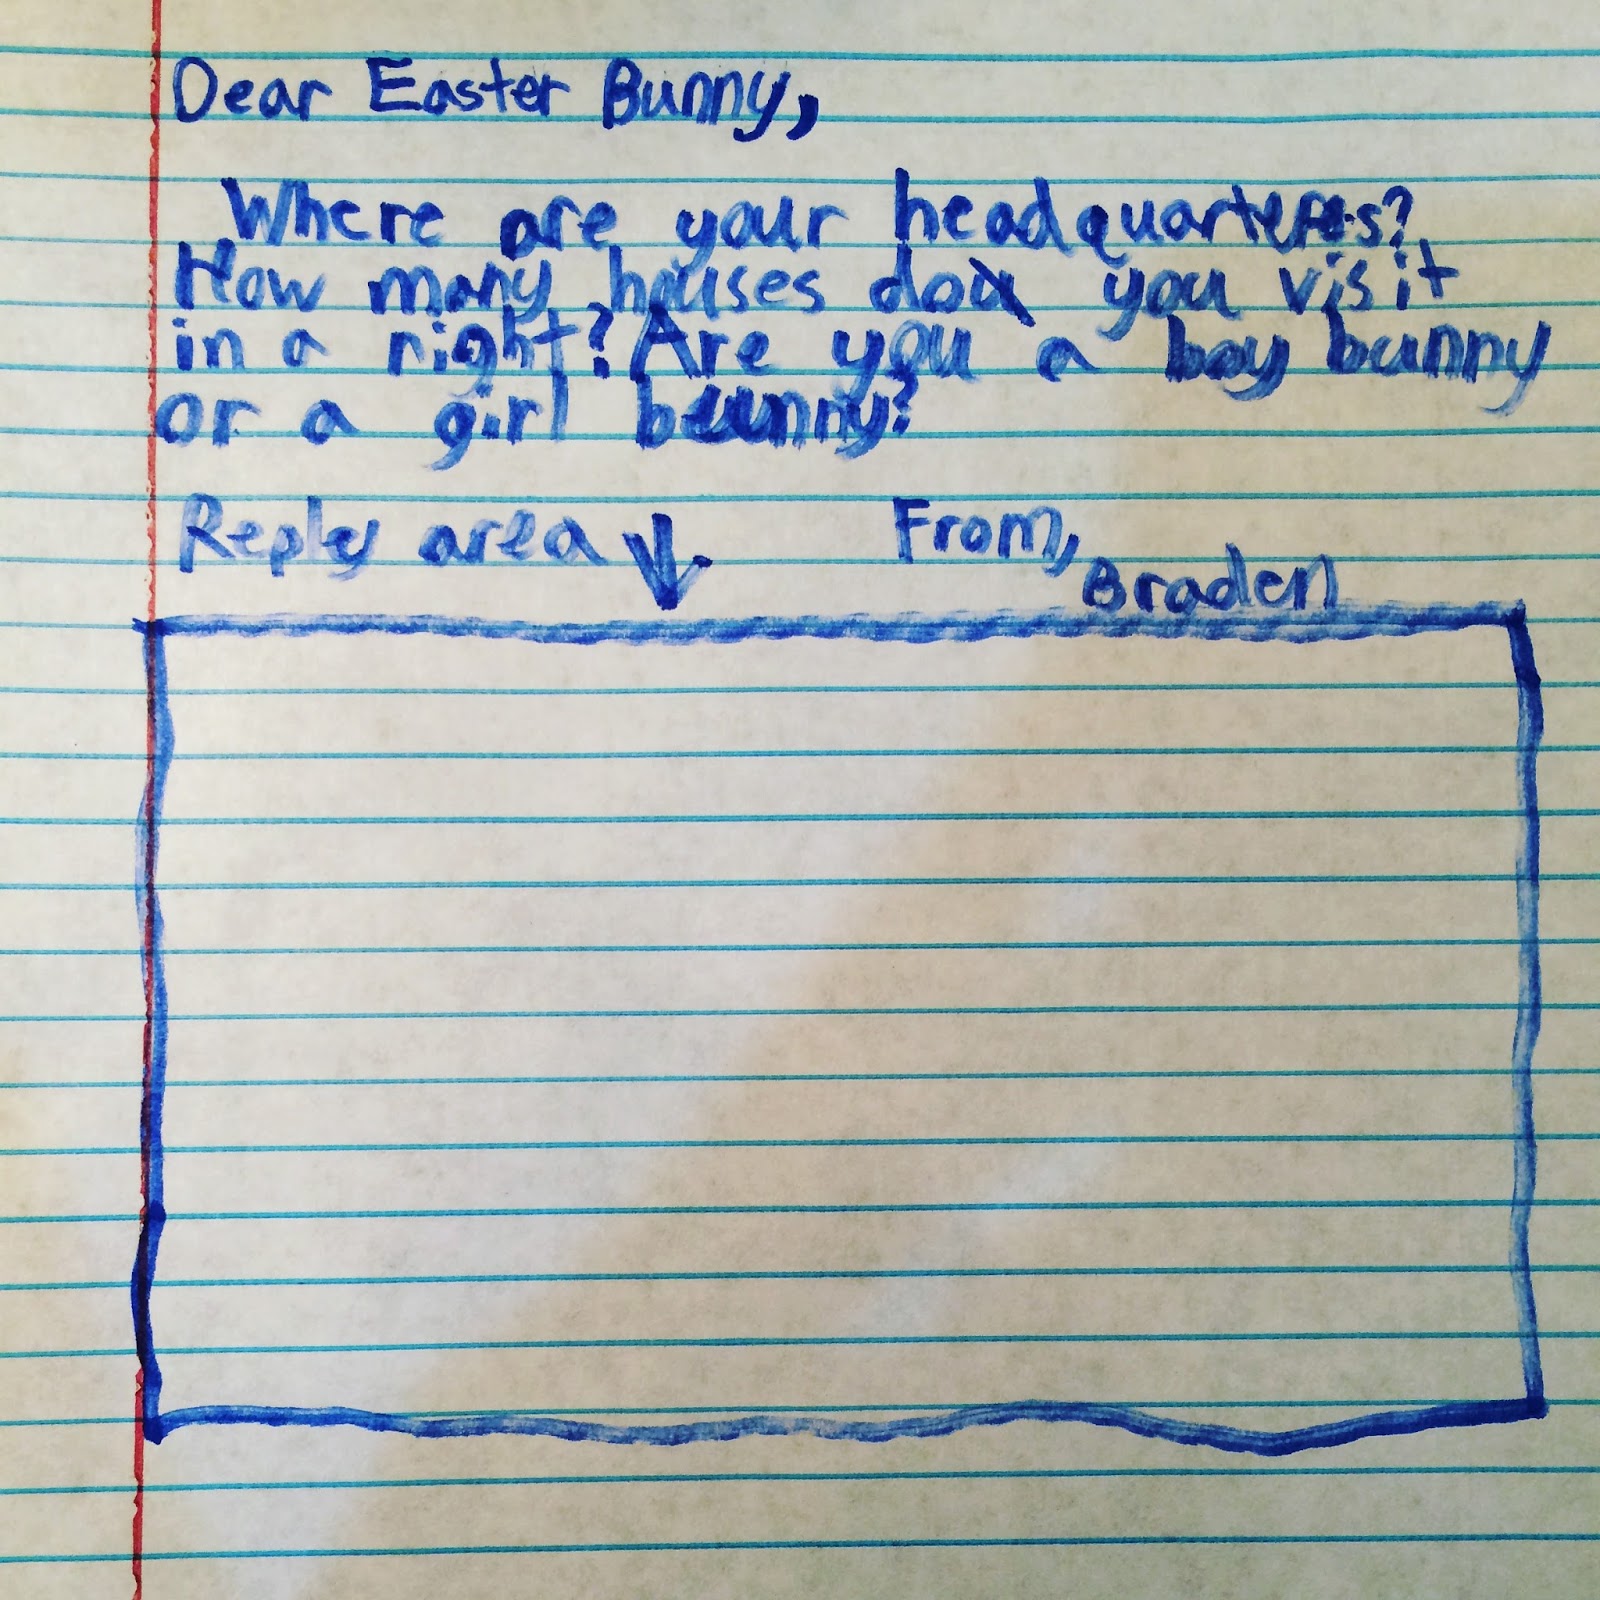 Dear Easter Bunny,
Where are your headquarters?
How many houses do you visit
in a night? Are you a boy bunny
or a girl bunny?
Reply area
From,
Braden